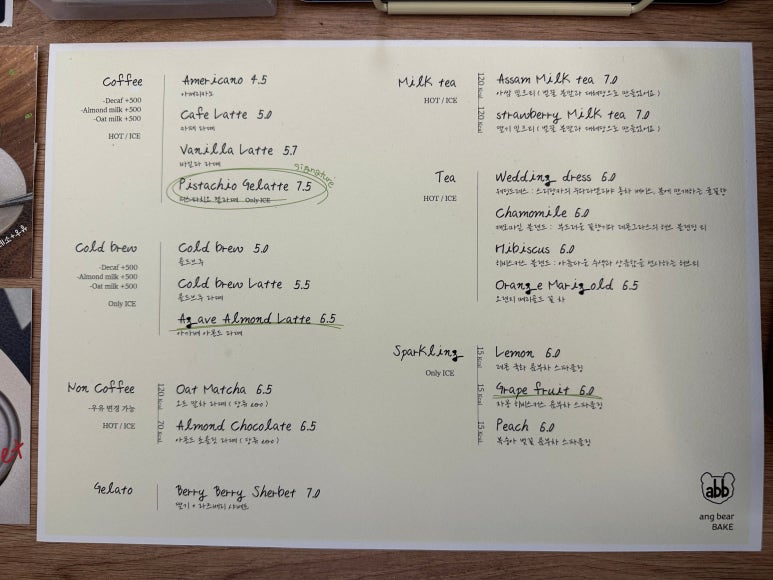 Coffee
-Decaf +500
-Almond milk +500
-Oat milk +500
HOT / ICE
Americano 4.5
아메리카노
Cafe Latte 5.0
카페 라떼
Vanilla Latte 5.7
바닐라 라떼
signature
Pistachio Gelatte 7.5
피스타치오 젤라떼 Only ICE
Cold brew
-Decaf +500
-Almond milk +500
-Oat milk +500
Only ICE
Cold brew 5.0
콜드브루
Cold brew Latte 5.5
콜드브루 라떼
Agave Almond Latte 6.5
아가베 아몬드 라떼
Non Coffee
-우유 변경 가능
HOT / ICE
120 Kcal
Oat Matcha 6.5
오트 말차 라떼 ( 당류 zero )
70 Kcal
Almond Chocolate 6.5
아몬드 초콜릿 라떼 ( 당류 zero )
Gelato
Berry Berry Sherbet 7.0
딸기 + 라즈베리 샤베트
Milk tea
HOT / ICE
120 Kcal
Assam Milk tea 7.0
아쌈 밀크티 ( 벌꿀 분말과 대체당으로 만들었어요 )
120 Kcal
strawberry Milk tea 7.0
딸기 밀크티 ( 벌꿀 분말과 대체당으로 만들었어요 )
Tea
HOT / ICE
Wedding dress 6.0
웨딩드레스 : 스리랑카의 누와라엘리야 홍차 베이스,
Chamomile 6.0
캐모마일 블렌드 : 부드러운 꿀향기와 레몬그라스의 허브 블렌딩 티
Hibiscus 6.0
히비스커스 블렌드 : 아름다운 수색과 상큼함을 선사하는 허브티
Orange Marigold 6.5
오렌지 메리골드 꽃 차
Sparkling
Only ICE
15 Kcal
Lemon 6.0
레몬 국화 콤부차 스파클링
15 Kcal
Grape fruit 6.0
자몽 히비스커스 콤부차 스파클링
15 Kcal
Peach 6.0
복숭아 벚꽃 콤부차 스파클링
abb
ang bear
BAKE